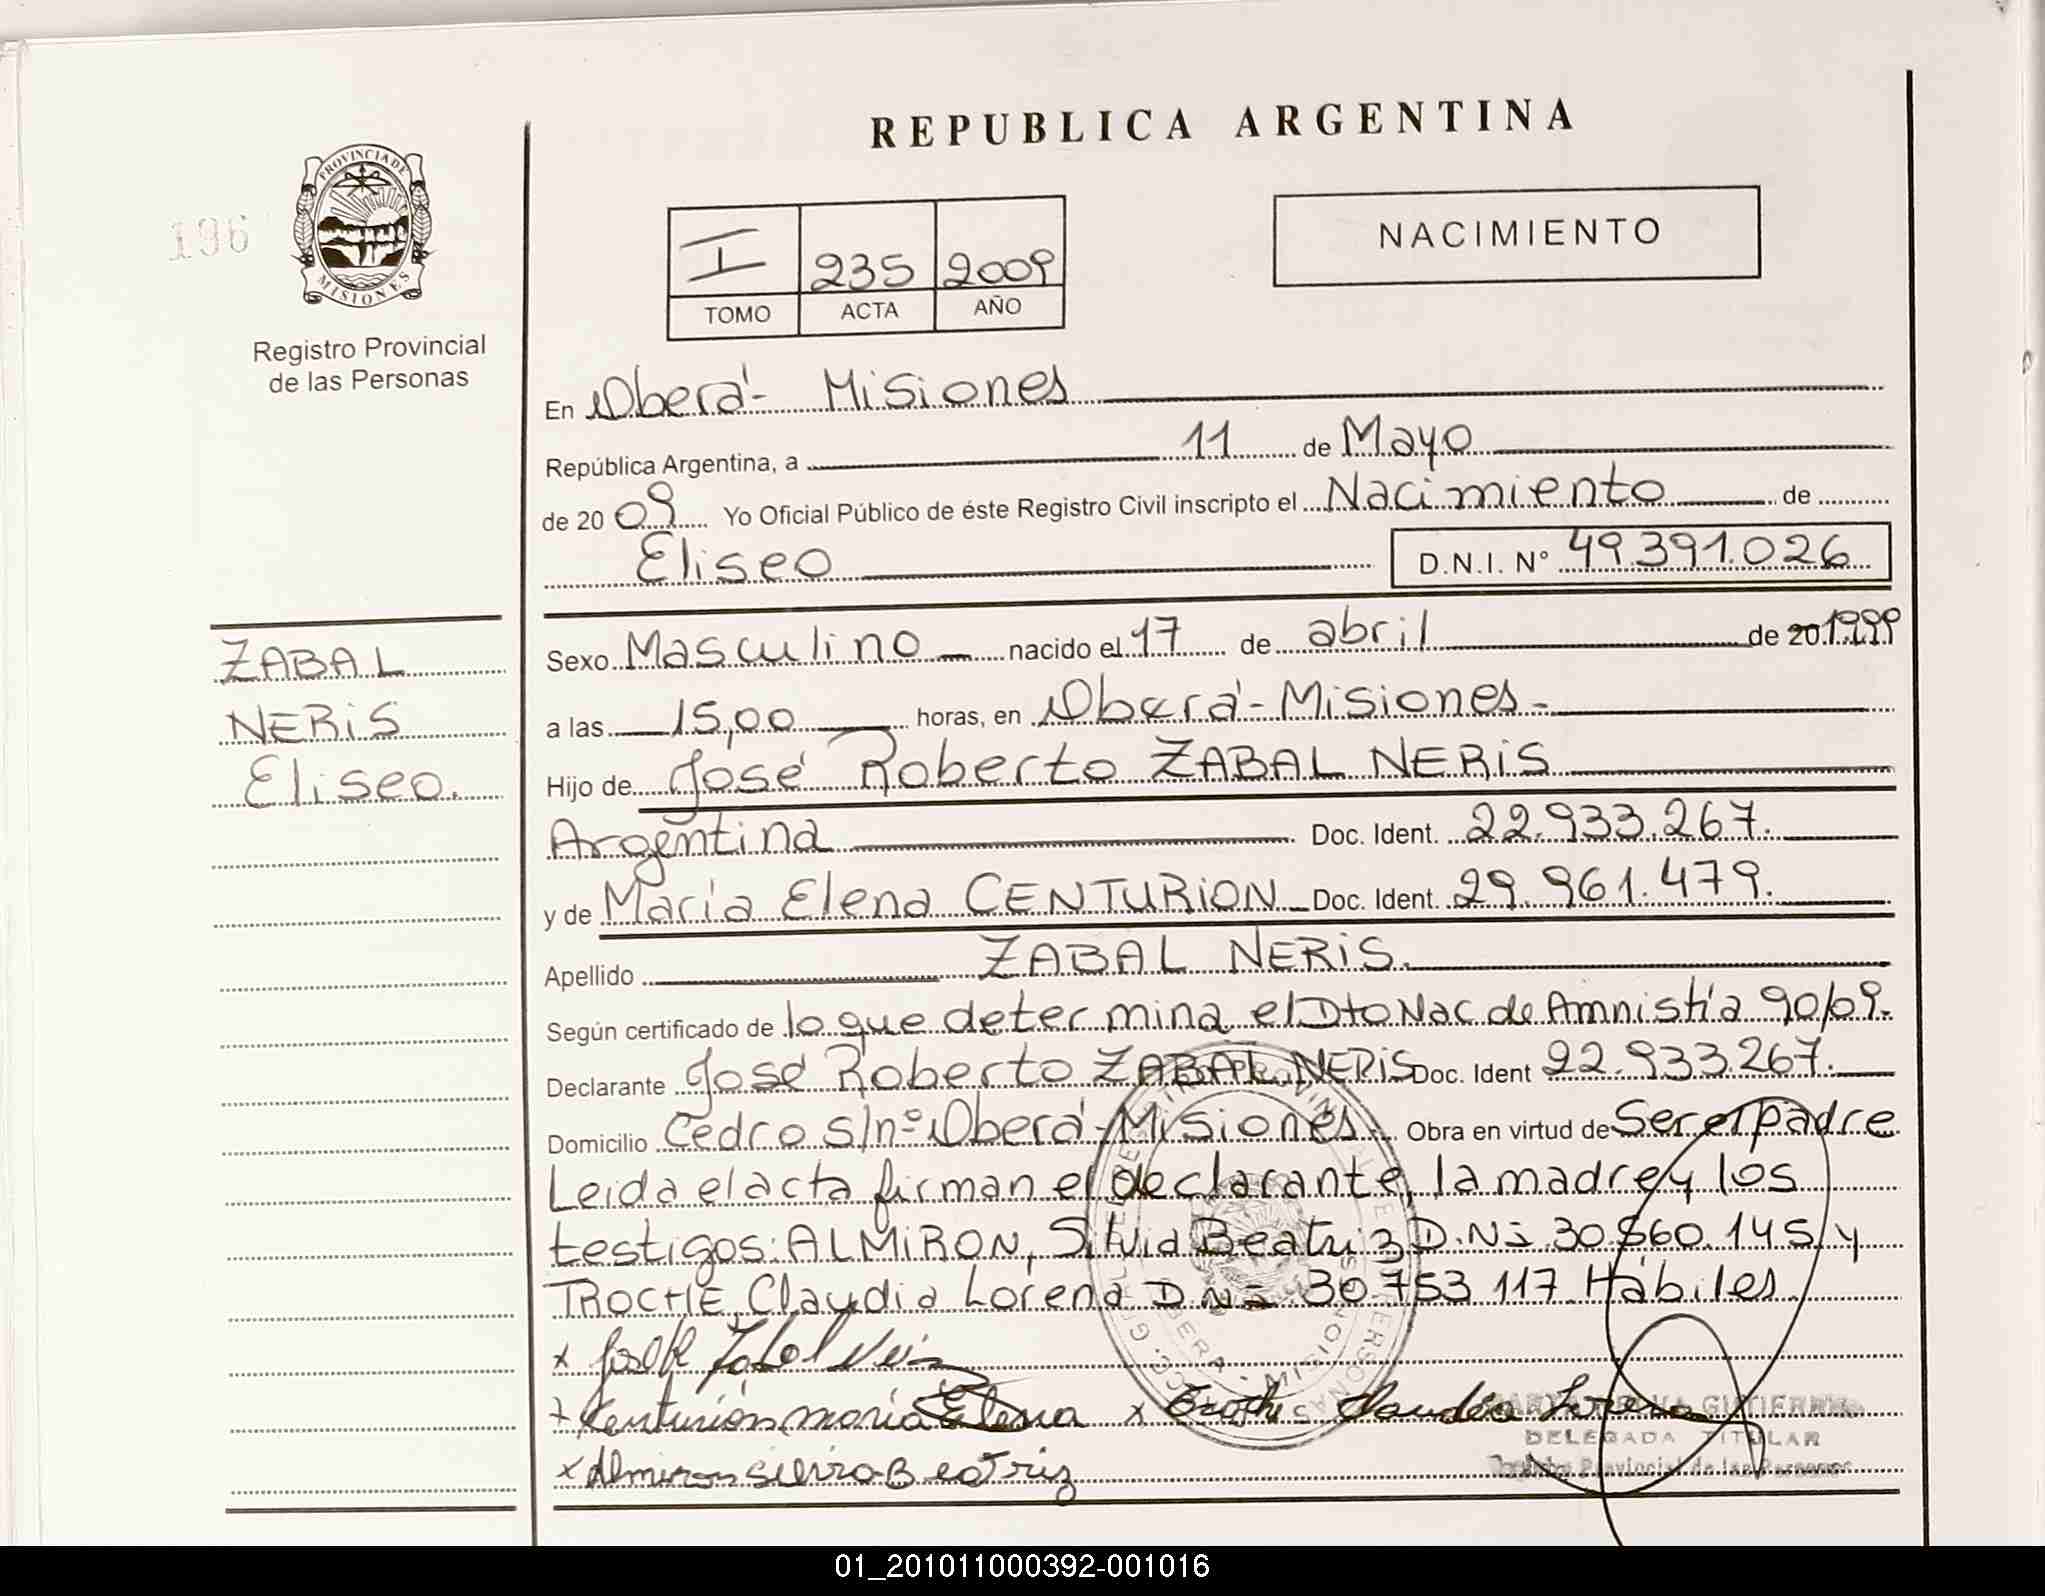 REPUBLICA ARGENTINA
196
PROVINCIA DE
MISIONES
Registro Provincial
de las Personas
I 235 2009
TOMO ACTA AÑO
NACIMIENTO
En Oberá- Misiones
República Argentina, a 11 de Mayo
de 20 09 Yo Oficial Público de éste Registro Civil inscripto el Nacimiento de
Eliseo D.N.I. Nº 49.391.026
ZABAL
NERIS
Eliseo.
Sexo Masculino nacido el 17 de abril de 20 1999
a las 15,00 horas, en Oberá-Misiones-
Hijo de José Roberto ZABAL NERIS
Argentina Doc. Ident. 22.933.267.
y de María Elena CENTURION Doc. Ident. 29.961.479.
Apellido ZABAL NERIS.
Según certificado de lo que determina el Dto Nac de Amnistía 90/09.
Declarante José Roberto ZABAL NERIS Doc. Ident 22.933.267.
Domicilio Cedro s/nº Oberá-Misiones. Obra en virtud de Ser el padre
Leida el acta firman el declarante, la madre y los
testigos: ALMIRON, Silvia Beatriz D.Ni 30.560.145 y
TROCHE, Claudia Lorena D.Ni 30.753.117 Hábiles
x José R Zabal Neris
x Centurión maria Elena x Troche Claudia Lorena
DELEGADA TITULAR
Registro Provincial de las Personas
x Almiron Silvia Beatriz
OBERA - MISIONES
01_201011000392-001016